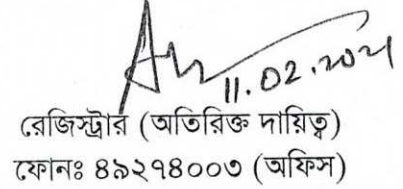 11.02.2021
রেজিস্ট্রার (অতিরিক্ত দায়িত্ব)
ফোনঃ ৪৯২৭৪০০৩ (অফিস)